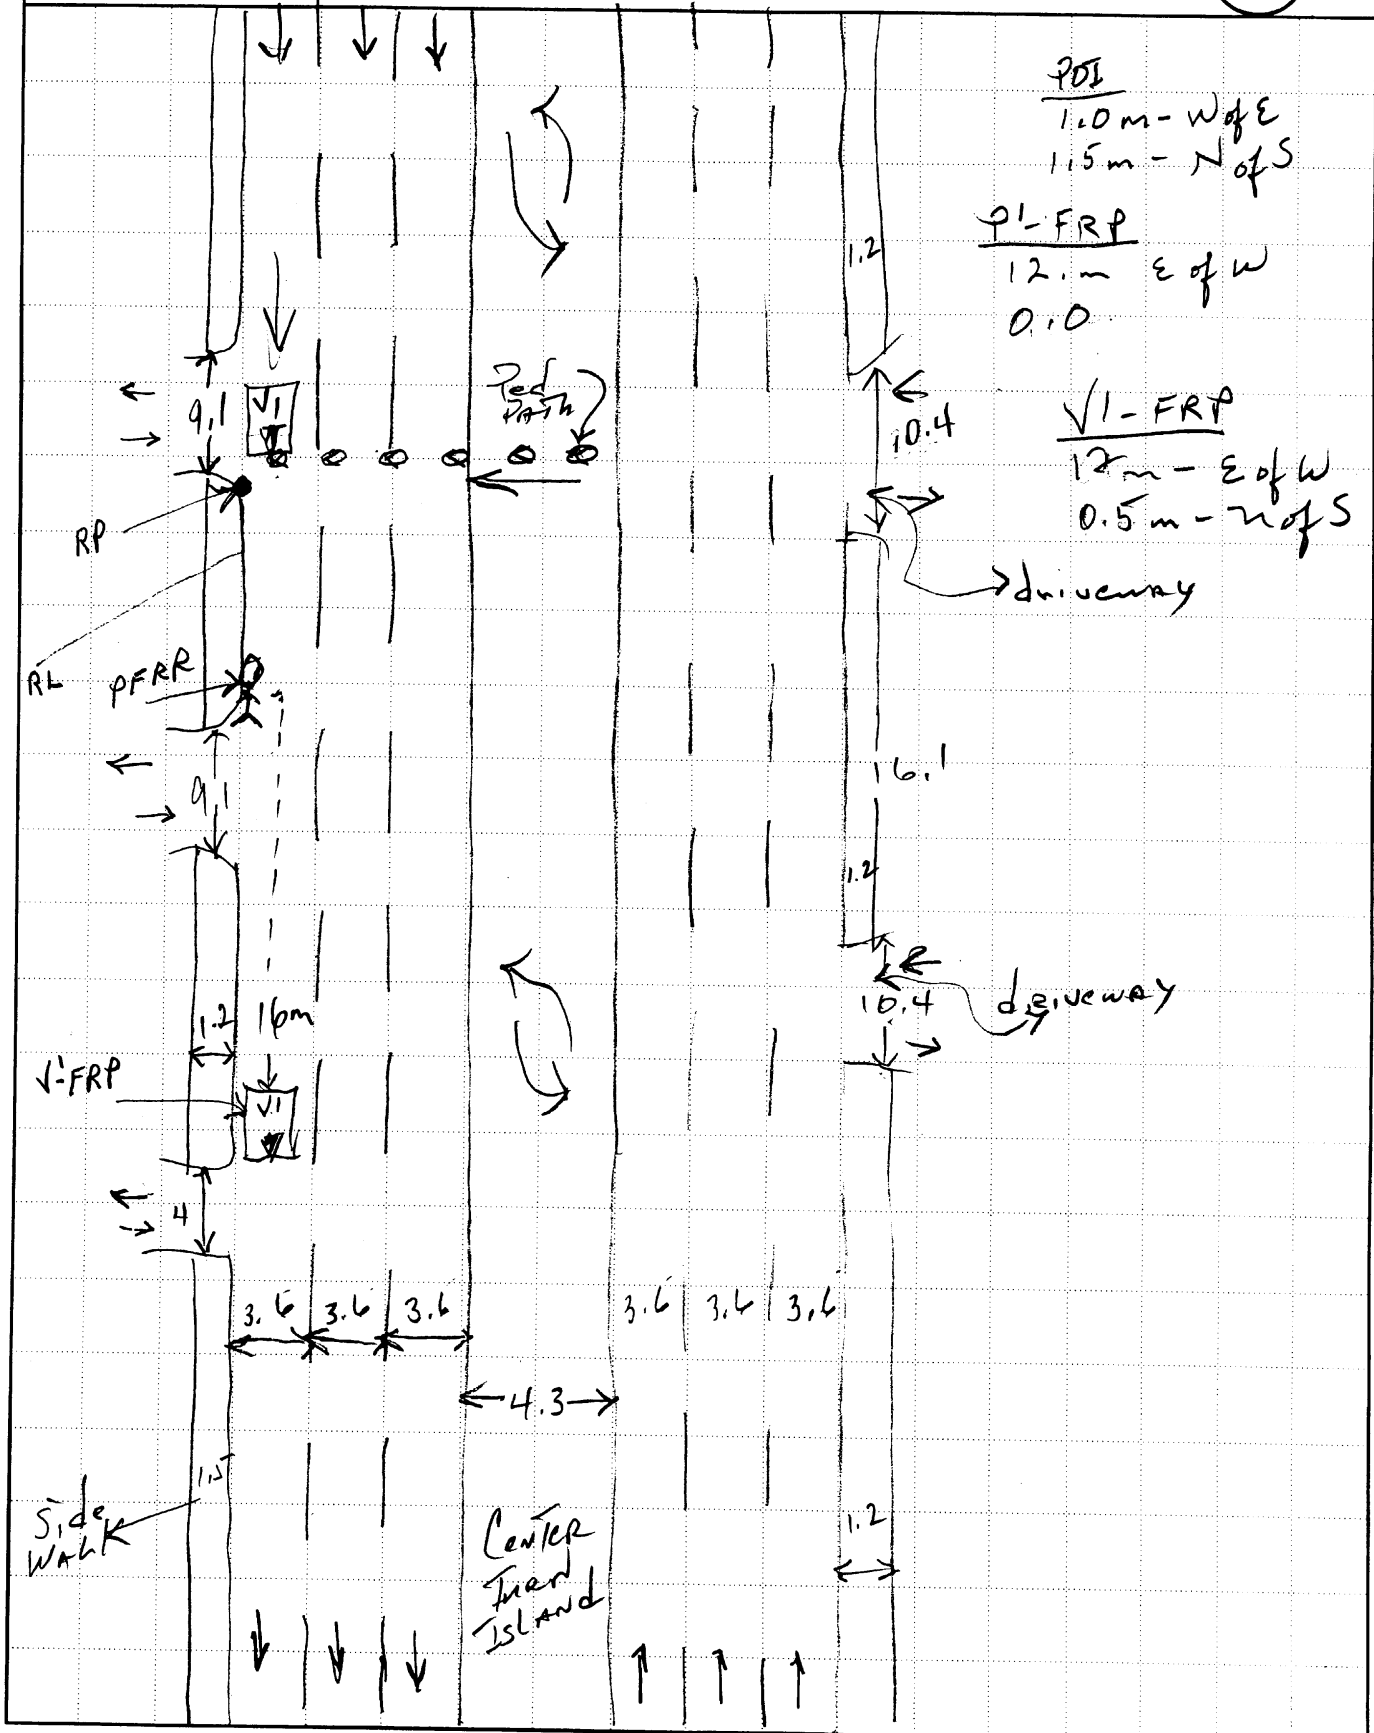 POI
1.0 m - W of E
1.5 m - N of S
P1-FRP
12. m E of W
0.0
V1-FRP
12 m - E of W
0.5 m - N of S
1.2
9.1
V1
Ped
Path
10.4
RP
driveway
RL
PFRR
9.1
16.1
1.2
10.4
driveway
1.2
16m
V1-FRP
V1
4
3.6
3.6
3.6
3.6
3.6
3.6
4.3
1.5
Side
Walk
Center
Turn
Island
1.2